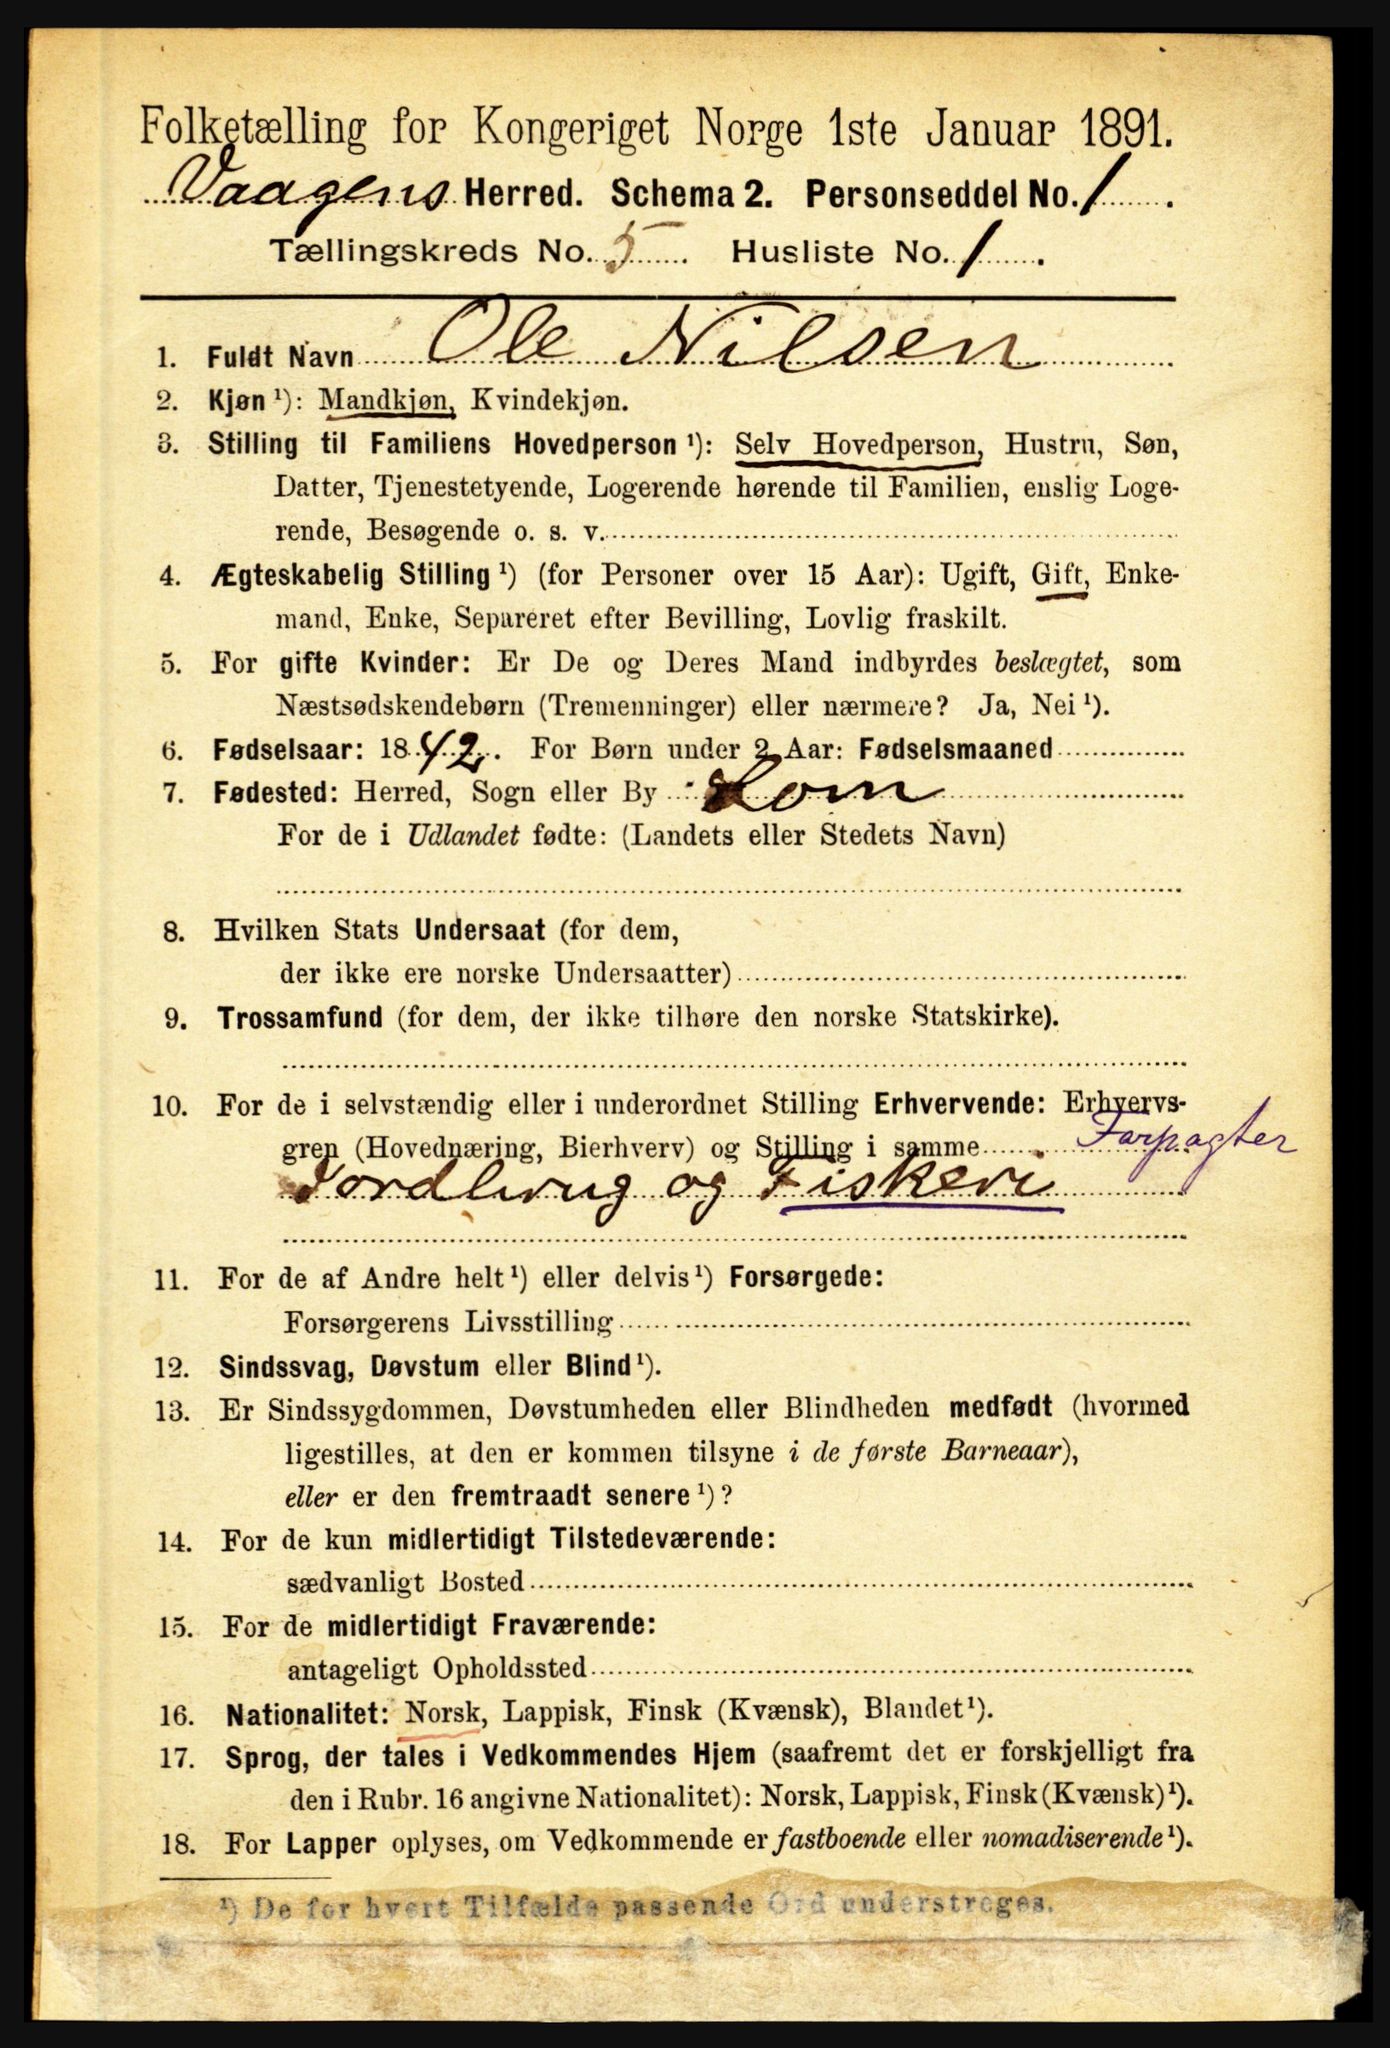 Folketælling for Kongeriget Norge 1ste Januar 1891.
Vaagens Herred. Schema 2. Personseddel No. 1.
Tællingskreds No. 5. Husliste No. 1.
1. Fuldt Navn Ole Nilsen
2. Kjøn ¹): Mandkjøn, Kvindekjøn.
3. Stilling til Familiens Hovedperson ¹): Selv Hovedperson, Hustru, Søn,
Datter, Tjenestetyende, Logerende hørende til Familien, enslig Loge-
rende, Besøgende o. s. v.
4. Ægteskabelig Stilling ¹) (for Personer over 15 Aar): Ugift, Gift, Enke-
mand, Enke, Separeret efter Bevilling, Lovlig fraskilt.
5. For gifte Kvinder: Er De og Deres Mand indbyrdes beslægtet, som
Næstsødskendebørn (Tremenninger) eller nærmere? Ja, Nei ¹).
6. Fødselsaar: 1842. For Børn under 2 Aar: Fødselsmaaned
7. Fødested: Herred, Sogn eller By Lom
For de i Udlandet fødte: (Landets eller Stedets Navn)
8. Hvilken Stats Undersaat (for dem,
der ikke ere norske Undersaatter)
9. Trossamfund (for dem, der ikke tilhøre den norske Statskirke).
10. For de i selvstændig eller i underordnet Stilling Erhvervende: Erhvervs-
gren (Hovednæring, Bierhverv) og Stilling i samme Forpagter
Jordbrug og Fiskeri
11. For de af Andre helt ¹) eller delvis ¹) Forsørgede:
Forsørgerens Livsstilling
12. Sindssvag, Døvstum eller Blind ¹).
13. Er Sindssygdommen, Døvstumheden eller Blindheden medfødt (hvormed
ligestilles, at den er kommen tilsyne i de første Barneaar),
eller er den fremtraadt senere ¹)?
14. For de kun midlertidigt Tilstedeværende:
sædvanligt Bosted
15. For de midlertidigt Fraværende:
antageligt Opholdssted
16. Nationalitet: Norsk, Lappisk, Finsk (Kvænsk), Blandet ¹).
17. Sprog, der tales i Vedkommendes Hjem (saafremt det er forskjelligt fra
den i Rubr. 16 angivne Nationalitet): Norsk, Lappisk, Finsk (Kvænsk) ¹).
18. For Lapper oplyses, om Vedkommende er fastboende eller nomadiserende ¹).
¹) De for hvert Tilfælde passende Ord understreges.